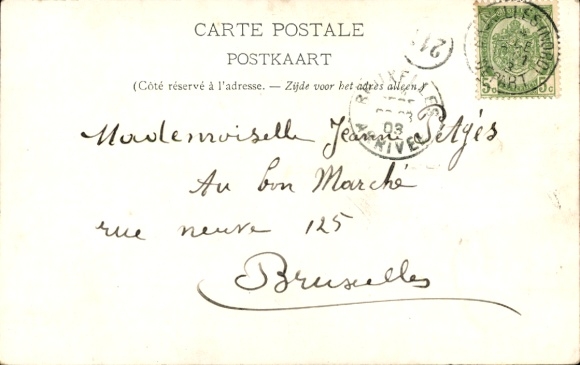 CARTE POSTALE
POSTKAART
(Côté réservé à l'adresse. — Zijde voor het adres alleen.)
21
BRUXELLES (NORD)
DEPART
5c 5c
BRUXELLES
03
ARRIVEE
Mademoiselle Jeanne
Au bon Marché
rue neuve 125
Bruxelles